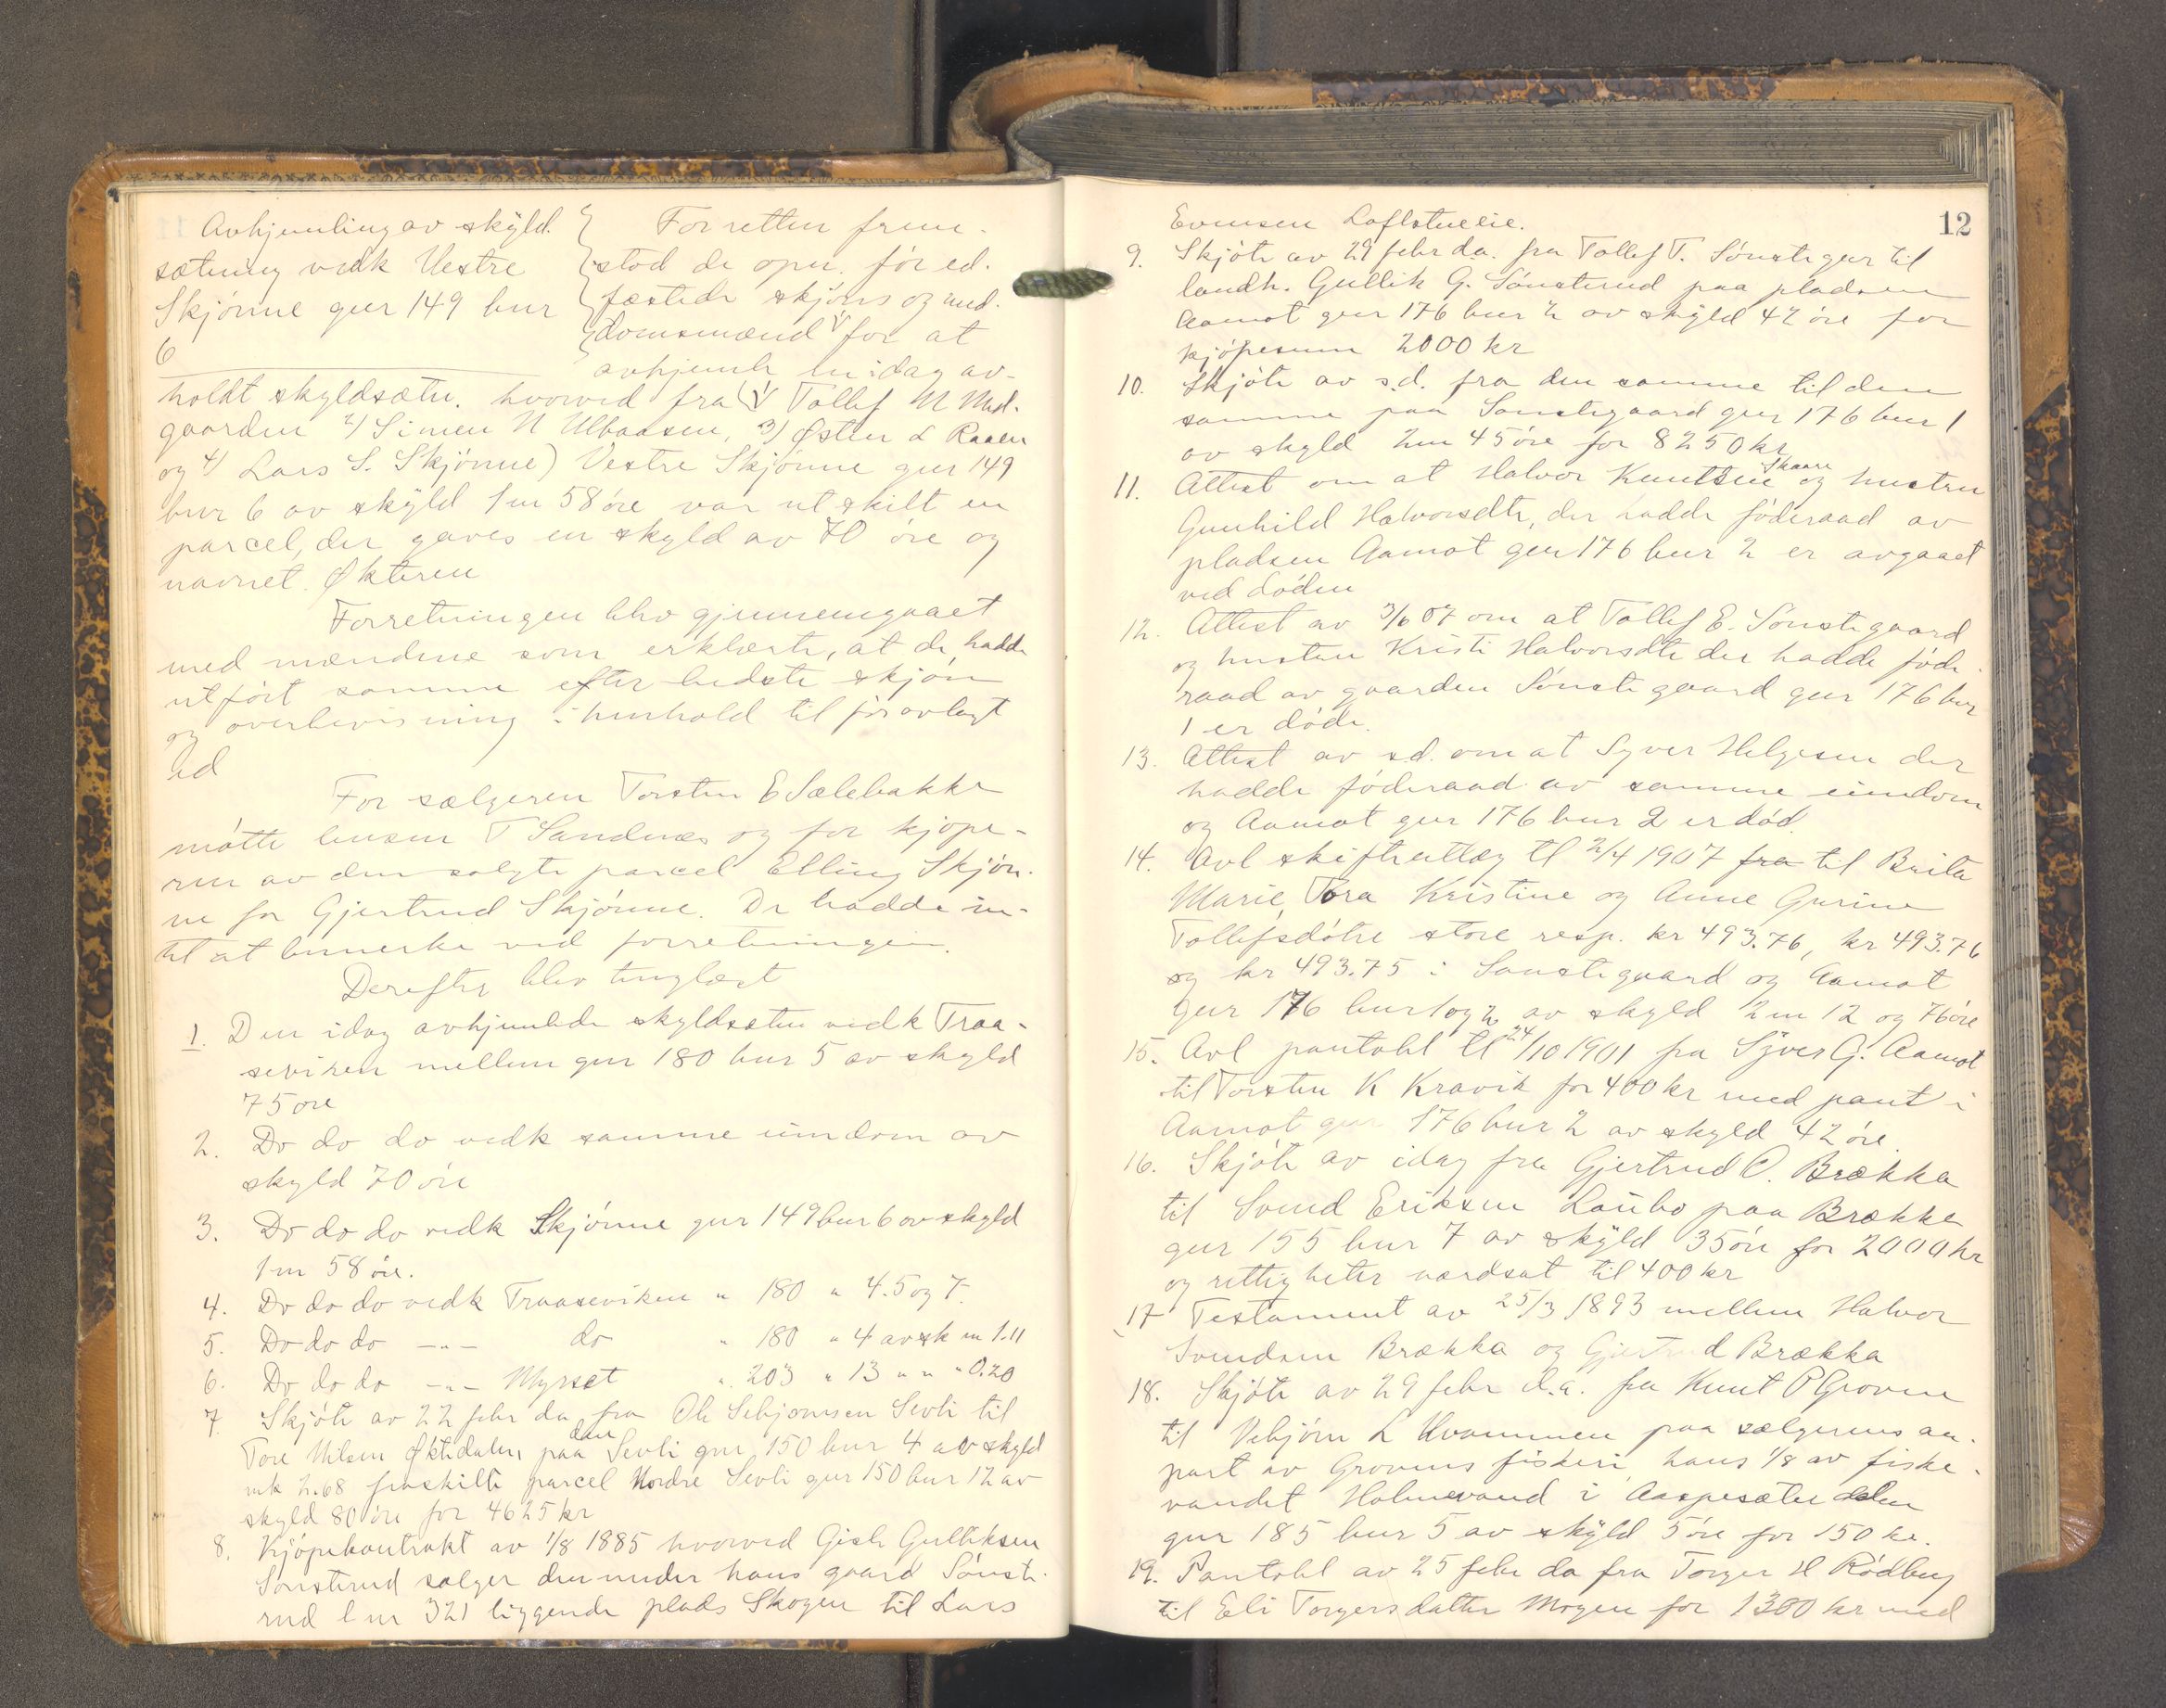 Avhjemling av skyld.
sætning vedk Vestre
Skjönne gnr 149 bnr
6
For retten frem-
stod de opn. för ed.
fæstede skjöns og med.
domsmænd for at
avhjemle en idag av-
holdt skyldsætn. hvorved fra 1/ Tollef N Med-
gaarden 2/ Simen N Ulbaasen, 3/ Østen L Raaen
og 4/ Lars S. Skjönne) Vestre Skjönne gnr 149
bnr 6 av skyld 1 m 58 öre var utskilt en
parcel, der gaves en skyld av 70 öre og
navnet Økteren
Forretningen blev gjennemgaaet
med mændene som erklærte, at de hadde
utfört samme efter bedste skjön
og overbevisning i henhold til för avlagt
ed
For sælgeren Torsten E Sælebakke
mötte lensm T Sandnæs og for kjöpe-
ren av den solgte parcel Elling Skjön-
ne for Gjertrud Skjönne. De hadde in-
tet at bemerke ved forretningen.
Derefter blev tinglæst
1. Den idag avhjemlede skyldsætn vedk Traa-
seviken mellem gnr 180 bnr 5 av skyld
75 öre
2. Do do do vedk samme eiendom av
skyld 70 öre
3. Do do do vedk Skjönne gnr 149 bnr 6 av skyld
1 m 58 öre.
4. Do do do vedk Traaseviken " 180 " 4. 5 og 7.
5. Do do do -"- do " 180 " 4 av sk m 1.11
6. Do do do -"- Myrset " 203 " 13 " " " 0.20
7. Skjöte av 22 febr da fra Ole Sebjornsen Sevli til
Tore Nilsen Øktedalen paa den Sevli gnr 150 bnr 4 av skyld
mk 2.68 fraskilte parcel Nordre Sevli gnr 150 bnr 12 av
skyld 80 öre for 4625 kr
8. Kjöpekontrakt av 1/8 1885 hvorved Gisle Gulliksen
Sönsterud sælger den under hans gaard Sönste-
rud l nr 321 liggende plads Skogen til Lars
12
Evensen Loftstueeie.
9. Skjöte av 29 febr d.a. fra Tollef T. Sönstegaar til
landh. Gullik G. Sönsterud paa pladsen
Aamot gnr 176 bnr 2 av skyld 42 öre for
kjöpesum 2000 kr
10. Skjöte av s.d. fra den samme til den
samme paa Sönstegaard gnr 176 bnr 1
av skyld 2 m 45 öre for 8250 kr
11. Attest om at Halvor Knutsen Skaare og hustru
Gunhild Halvorsdtr, der hadde föderaad av
pladsen Aamot gnr 176 bnr 2 er avgaaet
ved döden
12. Attest av 3/6 07 om at Tollef E. Sönstegaard
og hustru Kristi Halvorsdtr der hadde föde-
raad av gaarden Sönstegaard gnr 176 bnr
1 er döde.
13. Attest av s.d. om at Syver Helgesen der
hadde föderaad av samme eiendom
og Aamot gnr 176 bnr 2 er död.
14. Avl skifteutlæg tl 2/4 1907 fra til Brita
Marie, Tora Kristine og Anne Gurine
Tollefsdötre store resp. kr 493.76, kr 493.76
og kr 493.75 i Sönstegaard og Aamot
gnr 176 bnr 1 og 2 av skyld 2 m 12 og 76 öre
15. Avl pantobl tl 24/10 1901 fra Syver G. Aamot
til Torsten K Kravik for 400 kr med pant i
Aamot gnr 176 bnr 2 av skyld 42 öre.
16. Skjöte av idag fra Gjertrud O. Brækka
til Svend Eriksen Laubo paa Brækka
gnr 155 bnr 7 av skyld 35 öre for 2000 kr
og rettigheter værdsat til 400 kr
17 Testament av 25/3 1893 mellem Halvor
Svendsen Brækka og Gjertrud Brækka
18. Skjöte av 29 febr d.a. fra Knut P Groven
til Vebjörn L Kvammen paa sælgerens an-
part av Grovens fiskeri, hans 1/8 av fiske-
vandet Holmevand i Aaspesæterdalen
gnr 185 bnr 5 av skyld 5 öre for 150 kr.
19. Pantobl av 25 febr da fra Torger H Rödberg
til Eli Torgersdatter Mogen for 1300 kr med